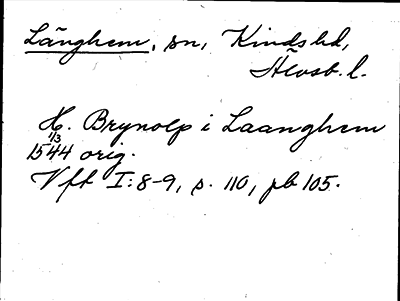 Länghem, sn, Kinds hd,
Älvsb. l.
H. Brynolp i Laanghem
1/3
1544 orig.
Vft I:8-9, s. 110, pb 105.